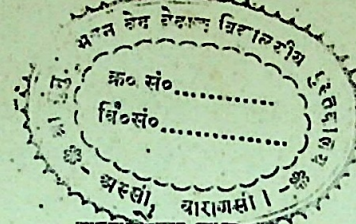 भवन वेद वेदाङ्ग विद्यालयीय पुस्तकालय
क्र० सं०............
वि०सं०...............
अस्सी, वाराणसी।